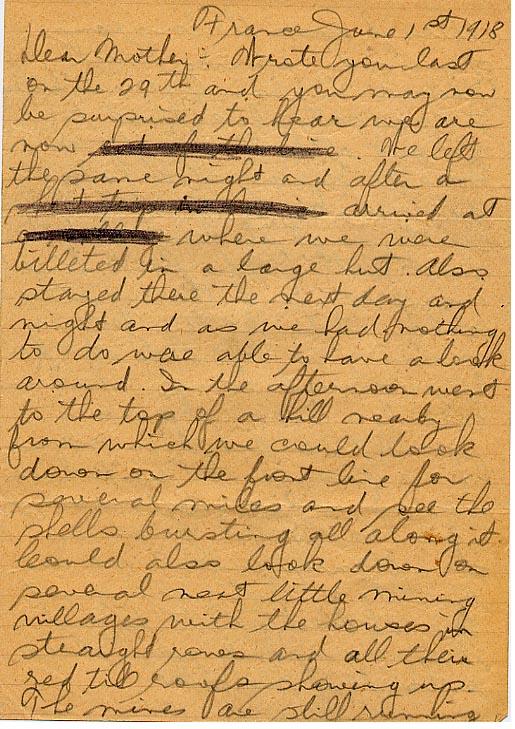 France June 1st 1918
Dear Mother:- Wrote you last
on the 29th and you may now
be surprised to hear we are
now out of the line. We left
the same night and after a
short trip in arrived at
where we were
billeted in a large hut. Also
stayed there the next day and
night and as we had nothing
to do were able to have a look
around. In the afternoon went
to the top of a hill nearby
from which we could look
down on the front line for
several miles and see the
shells bursting all along it
Could also look down on
several neat little mining
villages with the houses in
straight rows and all their
red tile roofs showing up.
The mines are still running